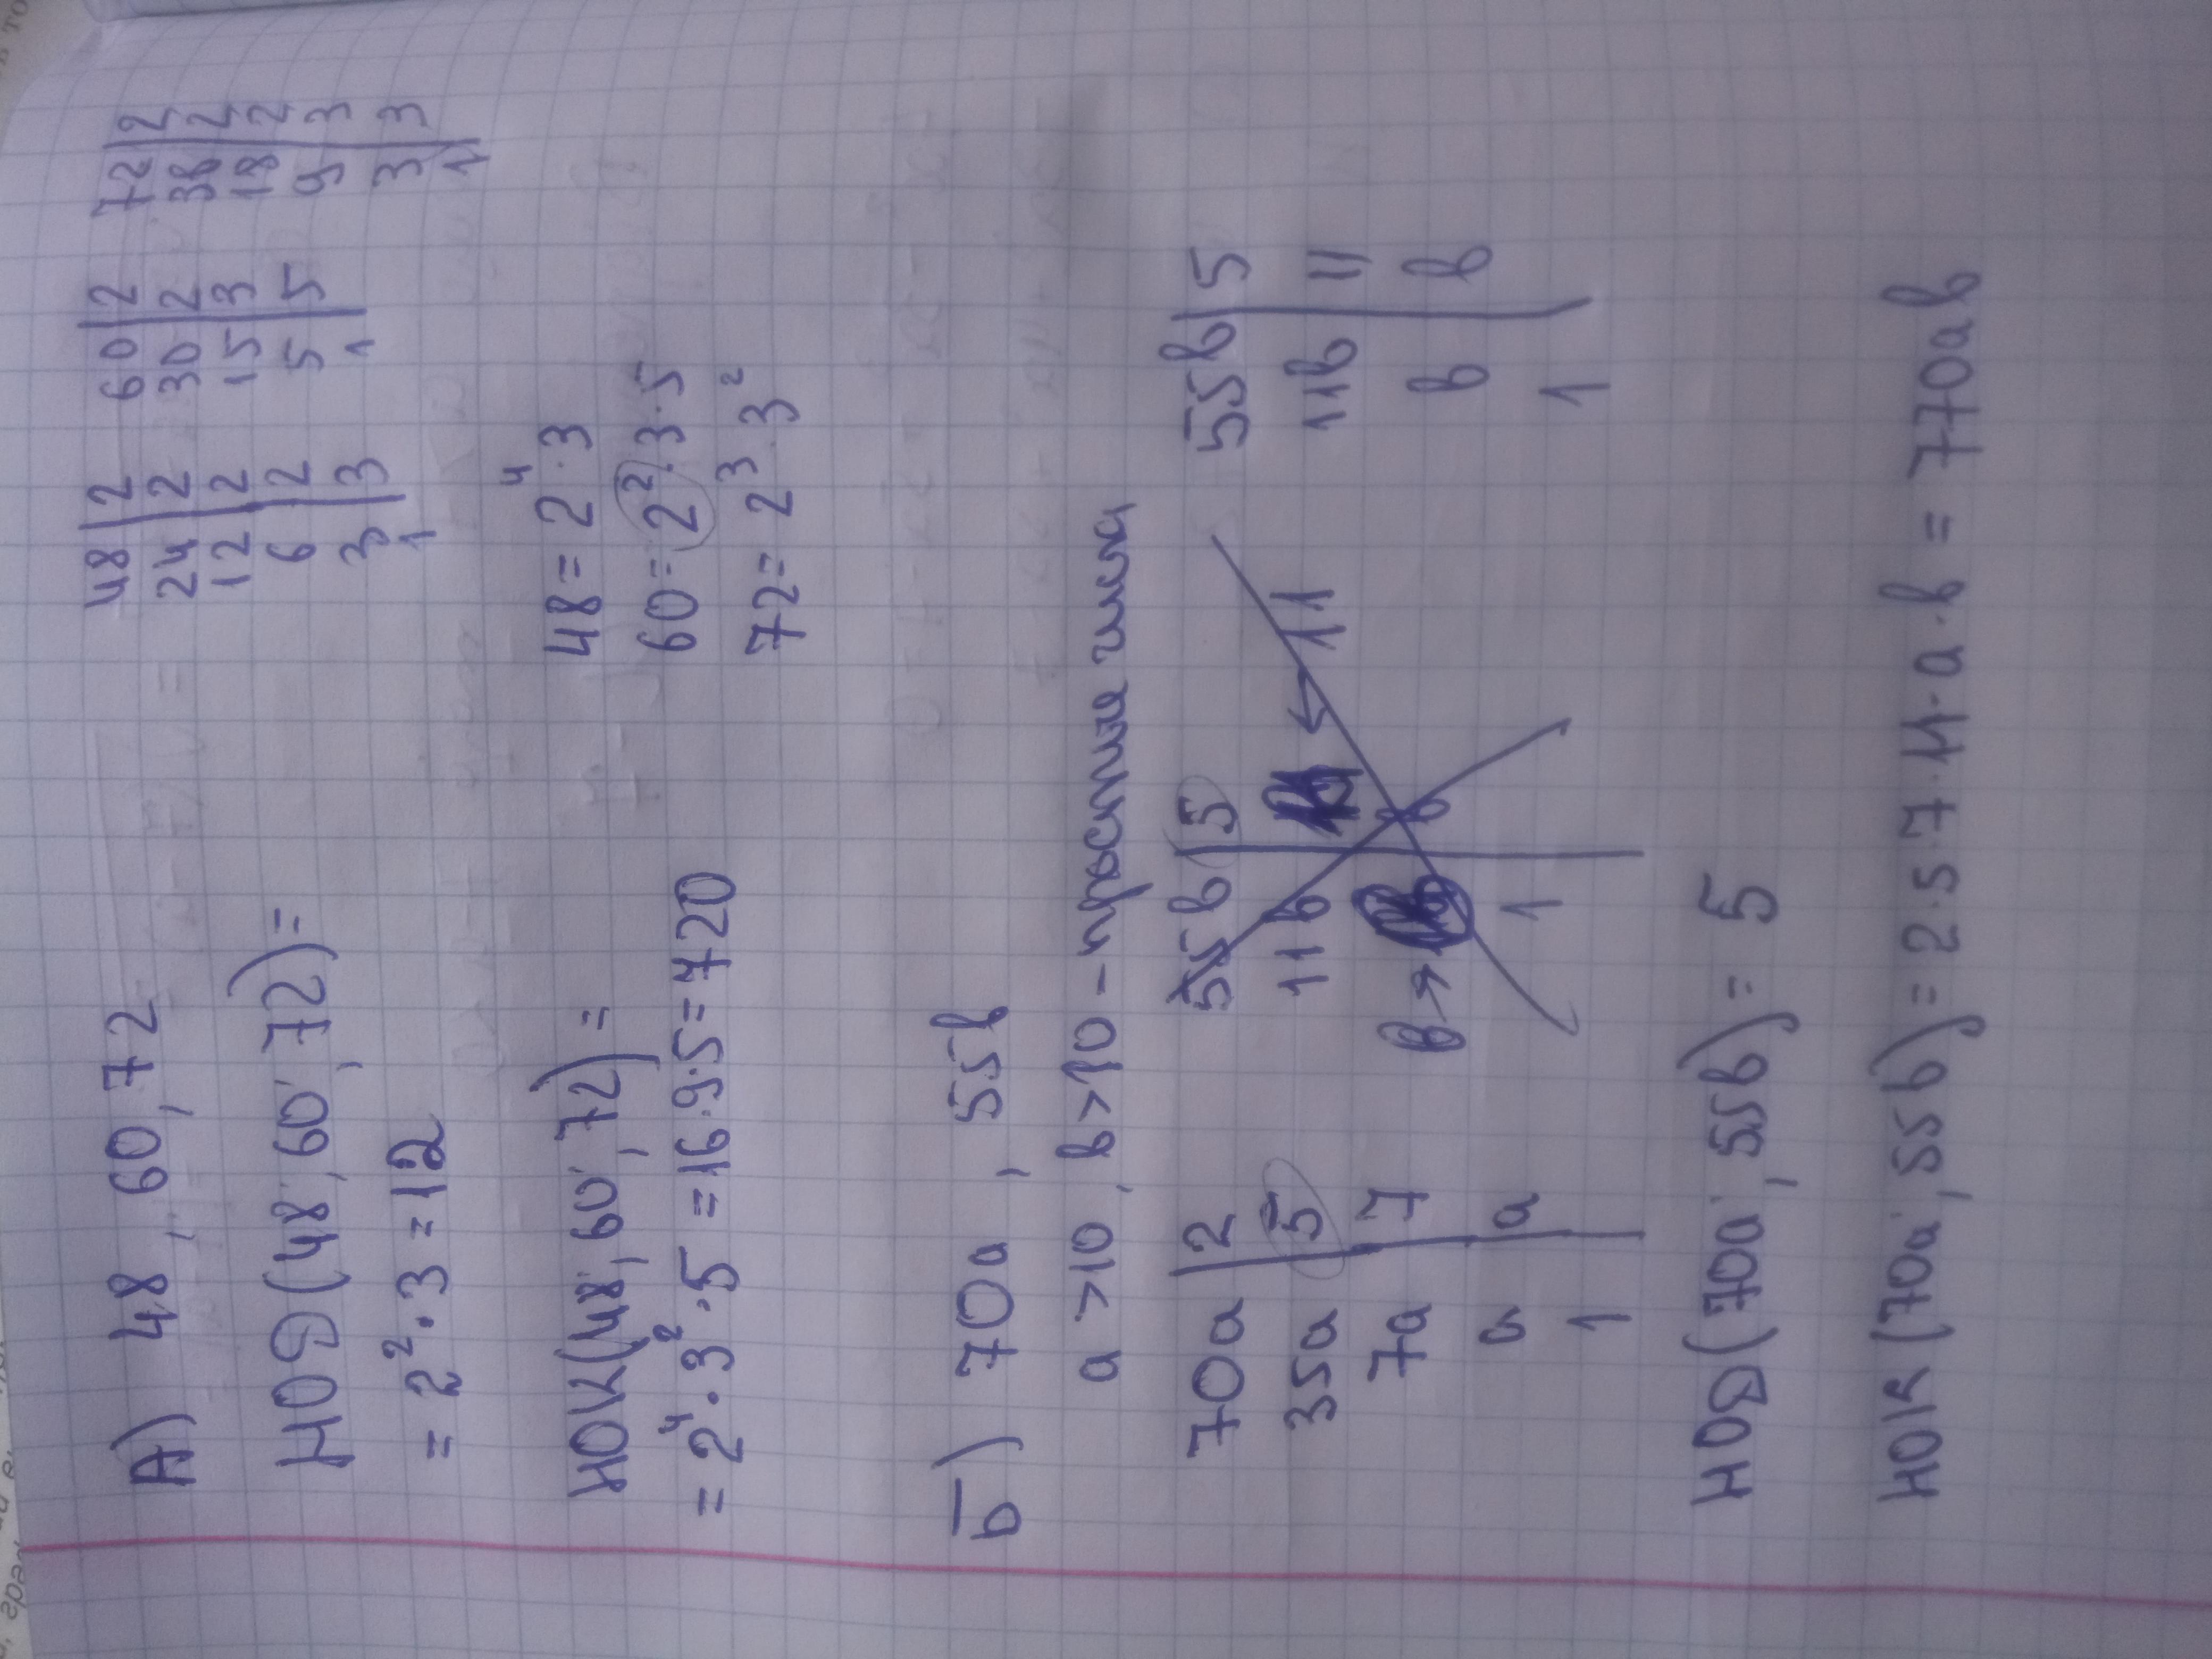 А) 48, 60, 72
НОД (48, 60, 72) =
= 2² · 3 = 12
НОК (48, 60, 72) =
= 2⁴ · 3² · 5 = 16 · 9 · 5 = 720
48 | 2
24 | 2
12 | 2
6 | 2
3 | 3
1
60 | 2
30 | 2
15 | 3
5 | 5
1
72 | 2
36 | 2
18 | 2
9 | 3
3 | 3
1
48 = 2⁴ · 3
60 = 2² · 3 · 5
72 = 2³ · 3²
Б) 70а, 55в
а > 10, в > 10 - простые числа
70а | 2
35а | 5
7а | 7
а | а
1
55в | 5
11в 11
в в
1
55в | 5
11в | 11
в | в
1
НОД (70а, 55в) = 5
НОК (70а, 55в) = 2 · 5 · 7 · 11 · а · в = 770ав